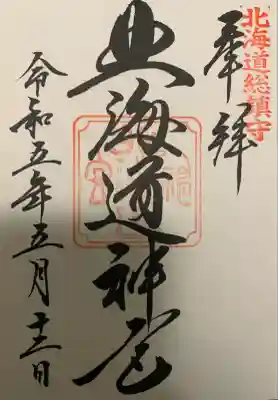 北海道総鎮守
奉拝
北海道神宮
令和五年五月十三日